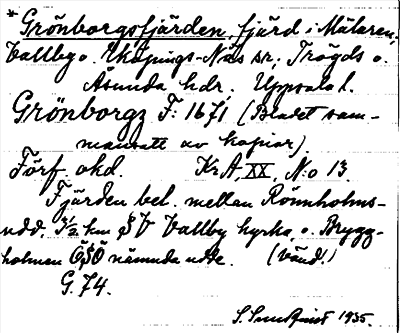 * Grönborgsfjärden, fjärd i Mälaren,
Vallby o. Enköpings-Näs sr, Trögds o.
Åsunda hdr, Uppsala l.
Grönborgz F: 1671 (Bladet sam-
mansatt av kopior).
Förf. okd. Kr A, XX, N:o 13.
Fjärden bel. mellan Rönnholms-
udd, 3½ km SV Vallby kyrka, o. Brygg-
holmen ÖSÖ nämnda udde. (Vänd!)
G. 74.
S. Sundqvist 1935